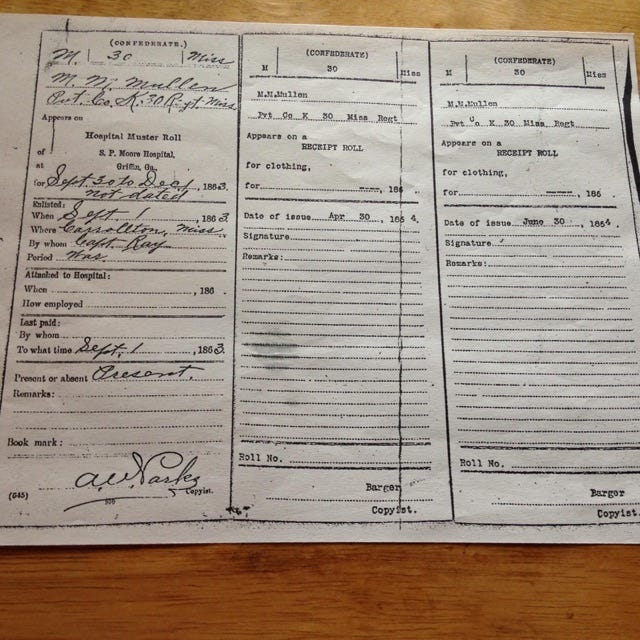 (CONFEDERATE.)
M. | 30 | Miss
M. M. Mullen
Pvt. Co. K. 30 Regt. Miss.
Appears on
Hospital Muster Roll
of S. P. Moore Hospital,
at Griffin, Ga.
for Sept. 30 to Dec. 1, 1863.
not dated
Enlisted:
When Sept. 1, 1863.
Where Carrollton, Miss.
By whom Capt. Kay
Period War.
Attached to Hospital:
When , 186
How employed
Last paid:
By whom
To what time Sept. 1, 1863.
Present or absent Present.
Remarks:
Book mark:
(645) Copyist.
(CONFEDERATE)
M | 30 | Miss
M.M.Mullen
Pvt Co K 30 Miss Regt
Appears on a
RECEIPT ROLL
for clothing,
for , 186 .
Date of issue Apr 30 , 1864.
Signature
Remarks:
Roll No.
Barger
Copyist.
(CONFEDERATE)
M | 30 | Miss
M.M.Mullen
Pvt Co K 30 Miss Regt
Appears on a
RECEIPT ROLL
for clothing,
for , 186 .
Date of issue June 30 , 1864.
Signature
Remarks:
Roll No.
Barger
Copyist.